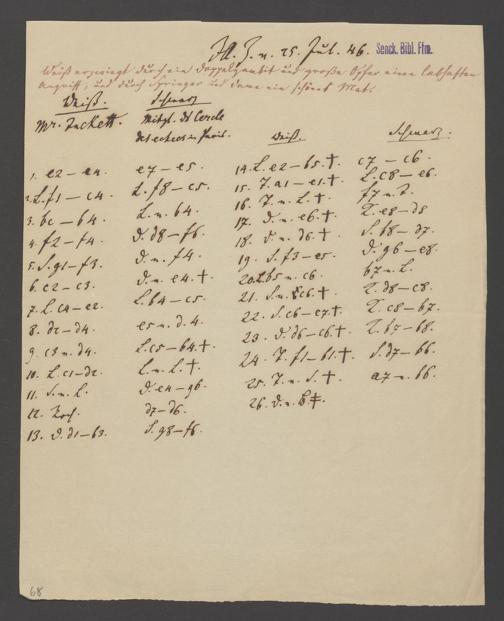 Ill. Z. v. 25. Jul. 46. Senck. Bibl. Ffm.
Weiß erzwingt durch ein Doppelgambit und große Opfer einen lebhaften
Angriff, und durch Springer und Dame ein schönes Mat.
Weiß. Schwarz
Mr. Zuckett. Mitgl. ds Cercle
des echecs in Paris.
Weiß. Schwarz.
1. e2 – e4. e7 – e5.
2. L. f1 – c4. L. f8 – c5.
3. bc – b4. L. n. b4.
4. f2 – f4. D. d8 – f6.
5. S. g1 – f3. D. n. f4.
6. c2 – c3. D. n. e4. †
7. L. c4 – e2. L. b4 – c5.
8. d2 – d4. e5 n. d. 4.
9. c3 n. d4. L. c5 – b4. †
10. L. c1 – d2. L. n. L. †
11. S. n. L. D. e4 – g6.
12. Roch. d7 – d6.
13. D. d1 – b3. S. g8 – f6.
14. L. e2 – b5. † c7 – c6.
15. T. a1 – e1. † L. c8 – e6.
16. T. n. L. † f7 n. T.
17. D. n. e6. † K. e8 – d8
18. D. n. d6. † S. b8 – d7.
19. S. f3 – e5. D. g6 – e8.
20. L. b5 n. c6. b7 n. L.
21. S. n. c6. † K. d8 – c8.
22. S. c6 – e7. † K. c8 – b7.
23. D. d6 – c6. † K. b7 – b8.
24. T. f1 – b1. † S. d7 – b6.
25. T. n. S. † a7 n. b6.
26. D. n. b ‡.
68